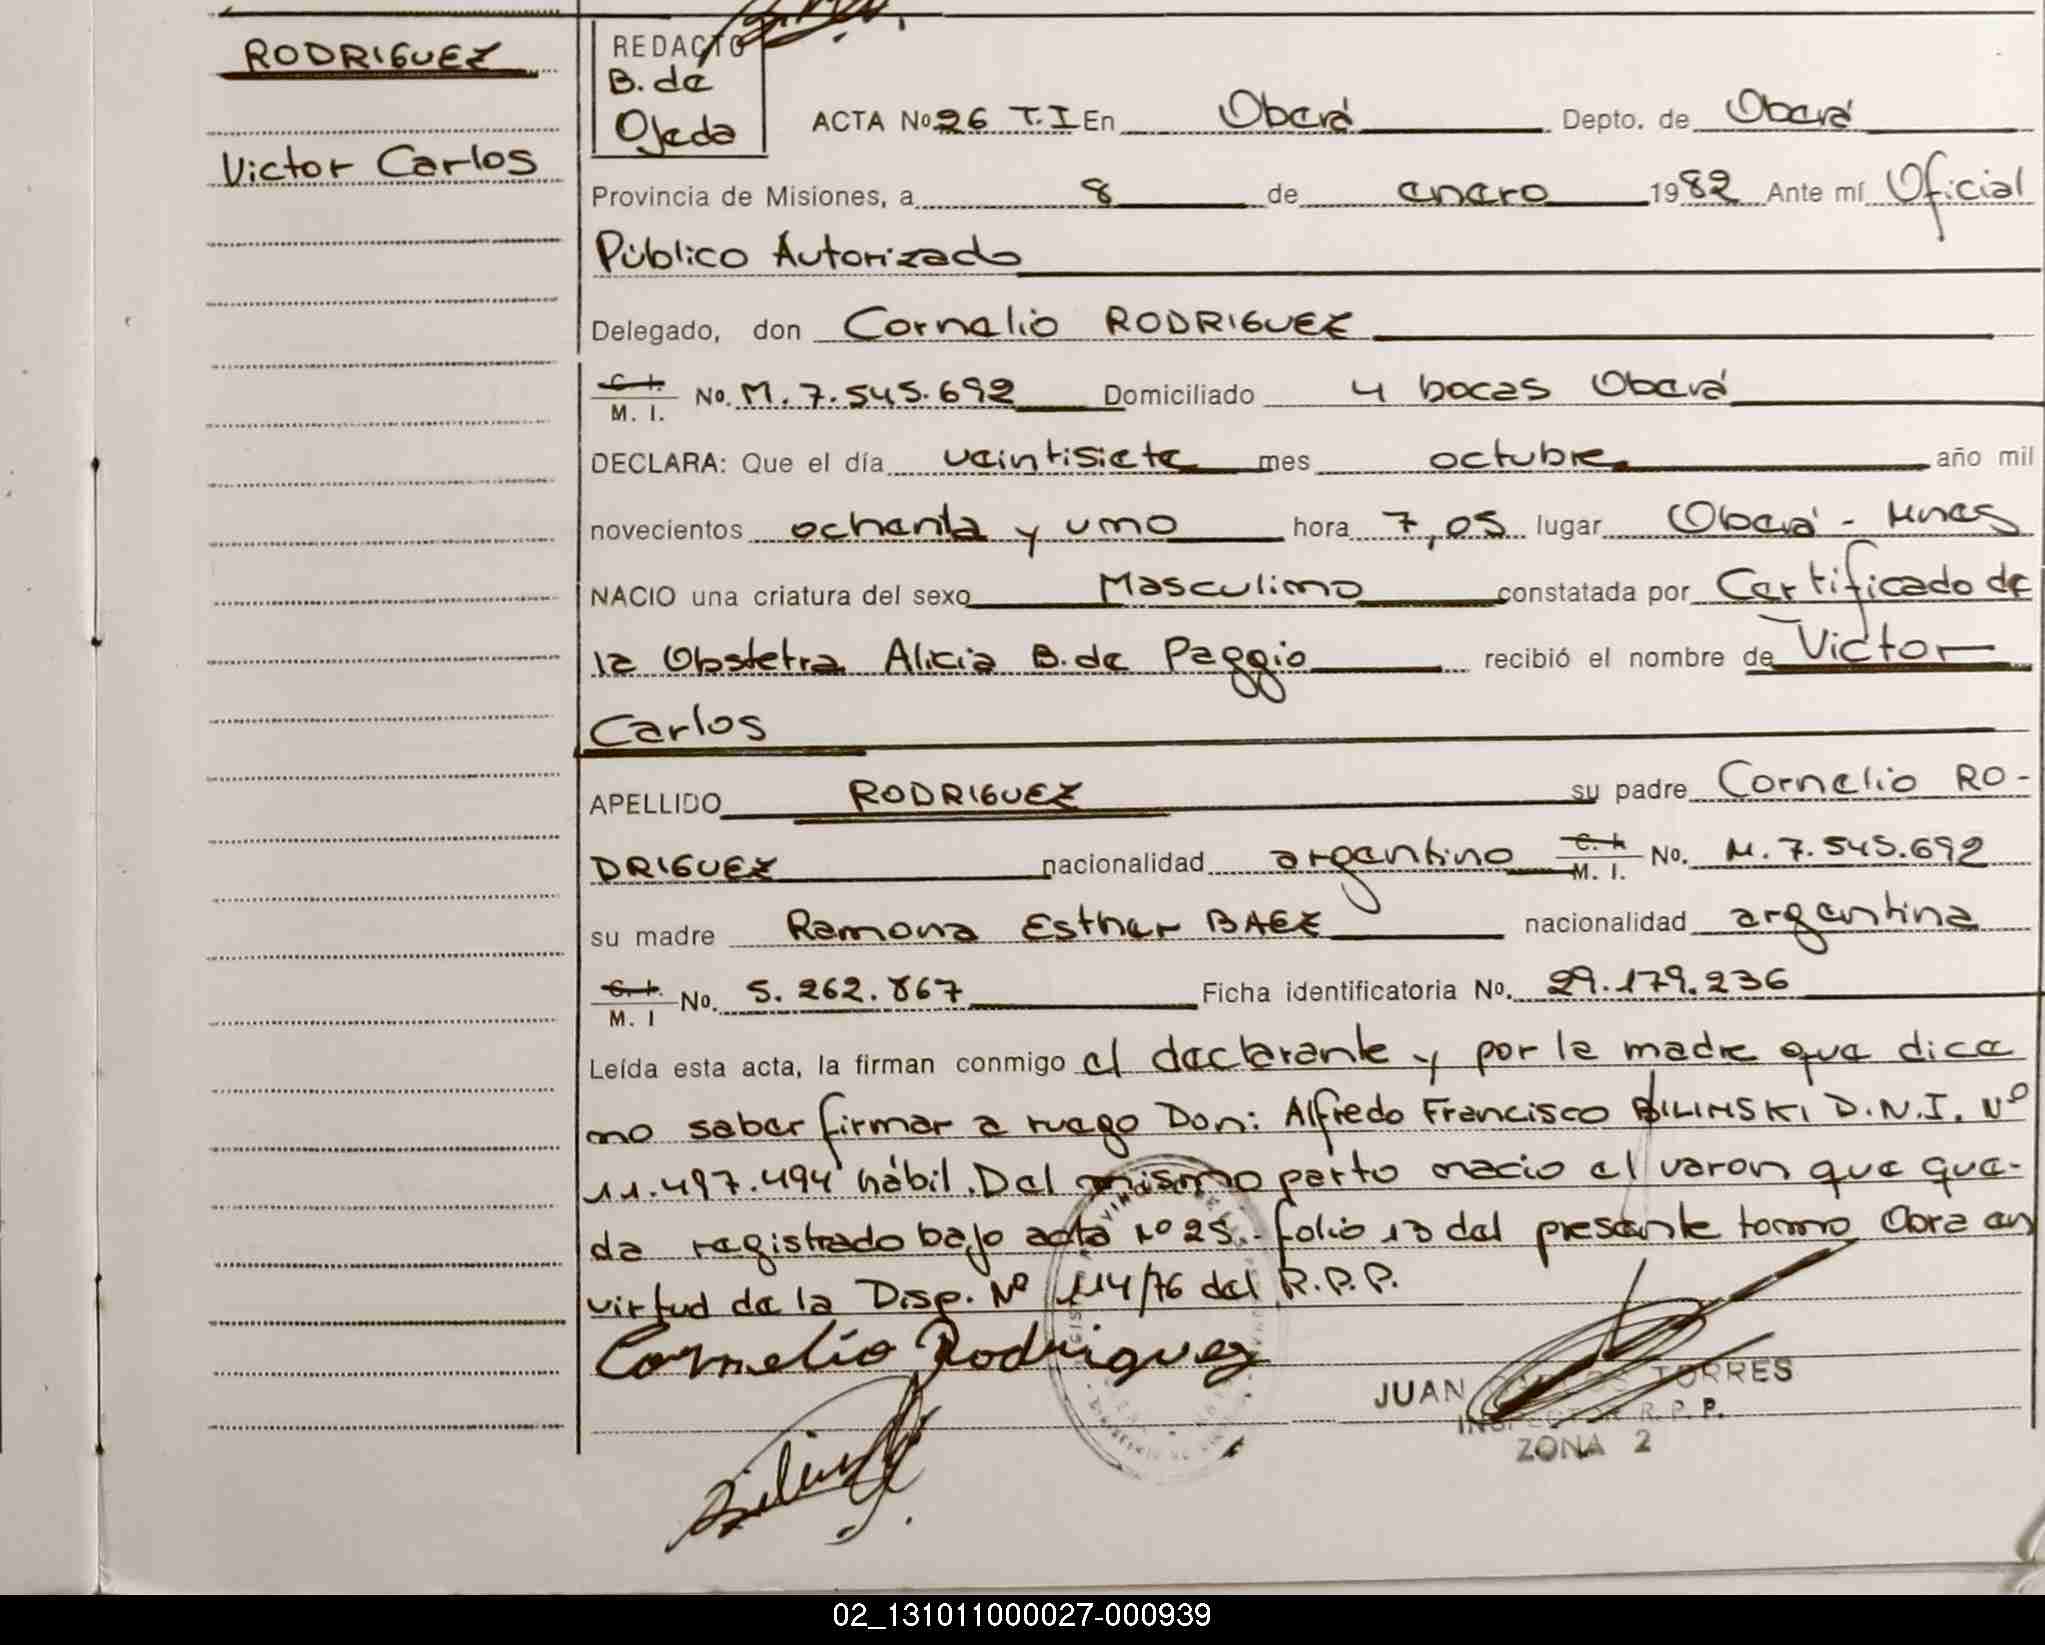 RODRIGUEZ
Victor Carlos
REDACTO
B. de
Ojeda
ACTA No 26 T.I En Oberá Depto. de Oberá
Provincia de Misiones, a 8 de enero 1982 Ante mí Oficial
Público Autorizado
Delegado, don Cornelio RODRIGUEZ
C. I.
M. I. No. M. 7.545.692 Domiciliado 4 bocas Oberá
DECLARA: Que el día veintisiete mes octubre año mil
novecientos ochenta y uno hora 7,05 lugar Oberá - Mnes
NACIO una criatura del sexo Masculino constatada por Certificado de
la Obstetra Alicia B. de Paggio recibió el nombre de Victor
Carlos
APELLIDO RODRIGUEZ su padre Cornelio RO-
DRIGUEZ nacionalidad argentino C. I. M. I. No. M. 7.545.692
su madre Ramona Esther BAEZ nacionalidad argentina
C. I.
M. I No. 5.262.867 Ficha identificatoria No. 29.179.236
Leída esta acta, la firman conmigo el declarante y por la madre que dice
no saber firmar a ruego Don: Alfredo Francisco BILINSKI D.N.I. Nº
11.497.494 hábil. Del mismo parto nacio el varon que que-
da registrado bajo acta Nº 25.- folio 13 del presente tomo Obra en
virtud de la Disp. Nº 114/76 del R.P.P.
Cornelio Rodriguez
JUAN CARLOS TORRES
INSPECTOR R. P. P.
ZONA 2
02_131011000027-000939